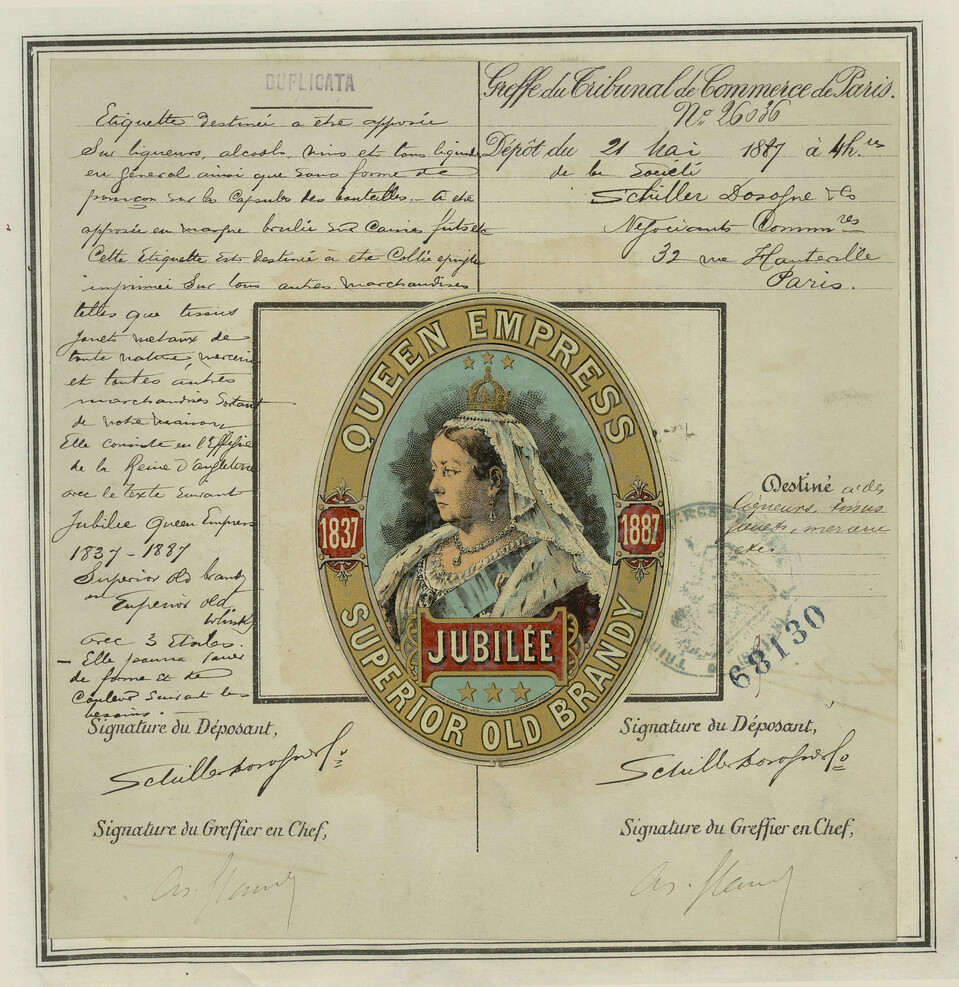 DUPLICATA
Etiquette destinée a être apposée
Sur liqueurs, alcools, vins et tous liquides
en général ainsi que sous forme de
poinçon sur les Capsules des bouteilles. — a être
apposée en marque brulée sur Caisses futs etc
Cette Etiquette est destinée a être Collée epinglée
imprimée Sur tous autres marchandises
telles que tissus
jouets metaux de
toute nature, mercerie
et toutes autres
marchandises Sortant
de notre maison,
Elle consiste en l'Effigie
de la Reine d'angleterre
avec le texte suivant
Jubilee Queen Empress
1837 - 1887
Superior old brandy
ou Superior old
Whisky
avec 3 etoiles.
— Elle pourra varier
de forme et de
Couleur suivant les
besoins.
Greffe du Tribunal de Commerce de Paris.
No 26036
Dépôt du 21 Mai 1887 à 4 h.res
de la Société
Schiller Dosogne & Co
Négociants Commres
32 rue Hauteville
Paris.
QUEEN EMPRESS
1837
1887
JUBILÉE
SUPERIOR OLD BRANDY
Destiné à des
liqueurs, tissus
jouets, meraux
etc.
68130
Signature du Déposant,
Schiller Dosogne & Co
Signature du Greffier en Chef,
Signature du Déposant,
Schiller Dosogne & Co
Signature du Greffier en Chef,